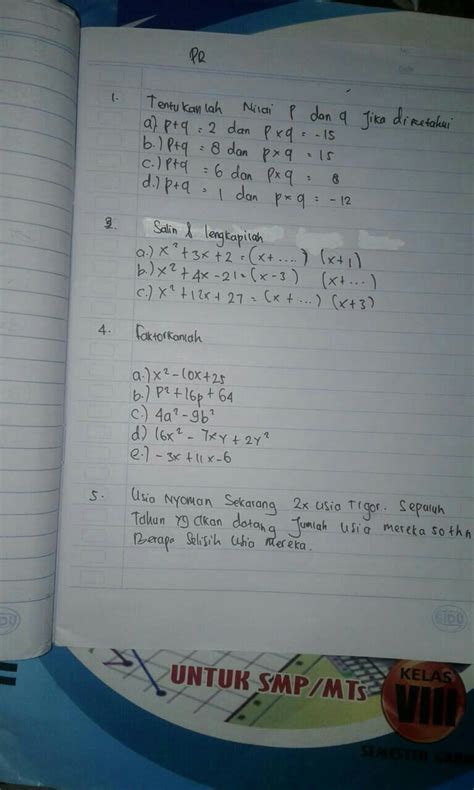 PR
1. Tentukanlah Nilai p dan q Jika diketahui
a.) p+q = 2 dan p x q = -15
b.) p+q = 8 dan p x q = 15
c.) p+q = 6 dan p x q = 8
d.) p+q = 1 dan p x q = -12
3. Salin & lengkapilah
a.) x² + 3x + 2 = (x + ....) (x+1)
b.) x² + 4x - 21 = (x-3) (x + ...)
c.) x² + 12x + 27 = (x + ...) (x+3)
4. Faktorkanlah
a.) x² - 10x + 25
b.) p² + 16p + 64
c.) 4a² - 9b²
d.) 16x² - 7xy + 2y²
e.) - 3x + 11x - 6
5. Usia Nyoman Sekarang 2x usia Tigor. Sepuluh
Tahun yg akan datang Jumlah usia mereka 50 thn
Berapa Selisih usia mereka.
SIDU
SIDU
UNTUK SMP/MTs
KELAS
VIII
SEMESTER